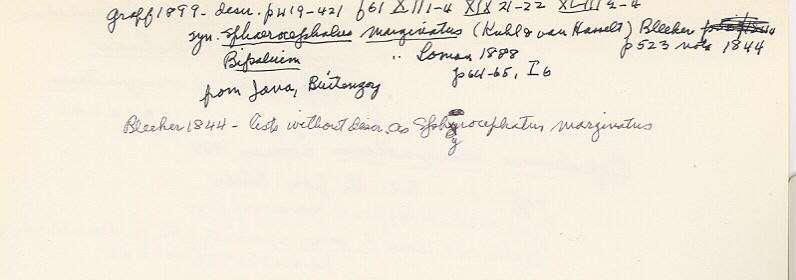 Graff 1899 - descr. p419-421 f61 XIII 1-4 XIX 21-22 XLIII 2-4
syn. Sphaerocephalus marginatus (Kuhl & van Hasselt) Bleeker
p523 nota 1844
Bipalium " Loman 1888
p64-65, I6
from Java, Buitenzorg
Bleeker 1844 - lists without descr. as Sphyrocephalus marginatus
y